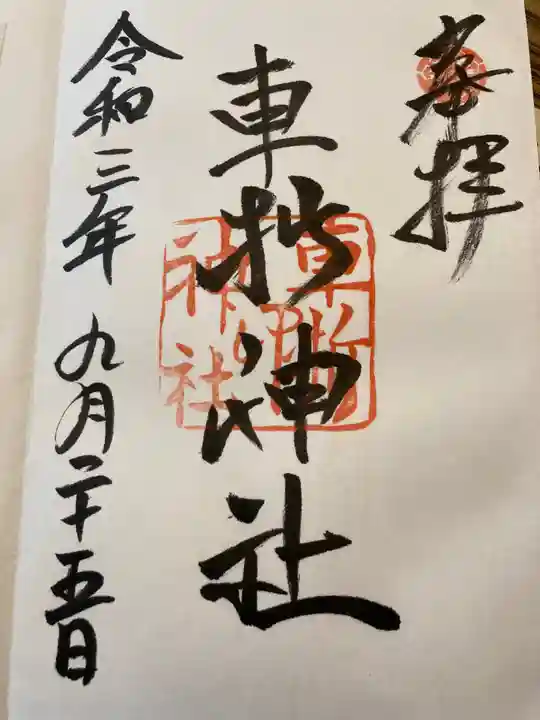 奉拝
車折神社
令和三年 九月二十五日